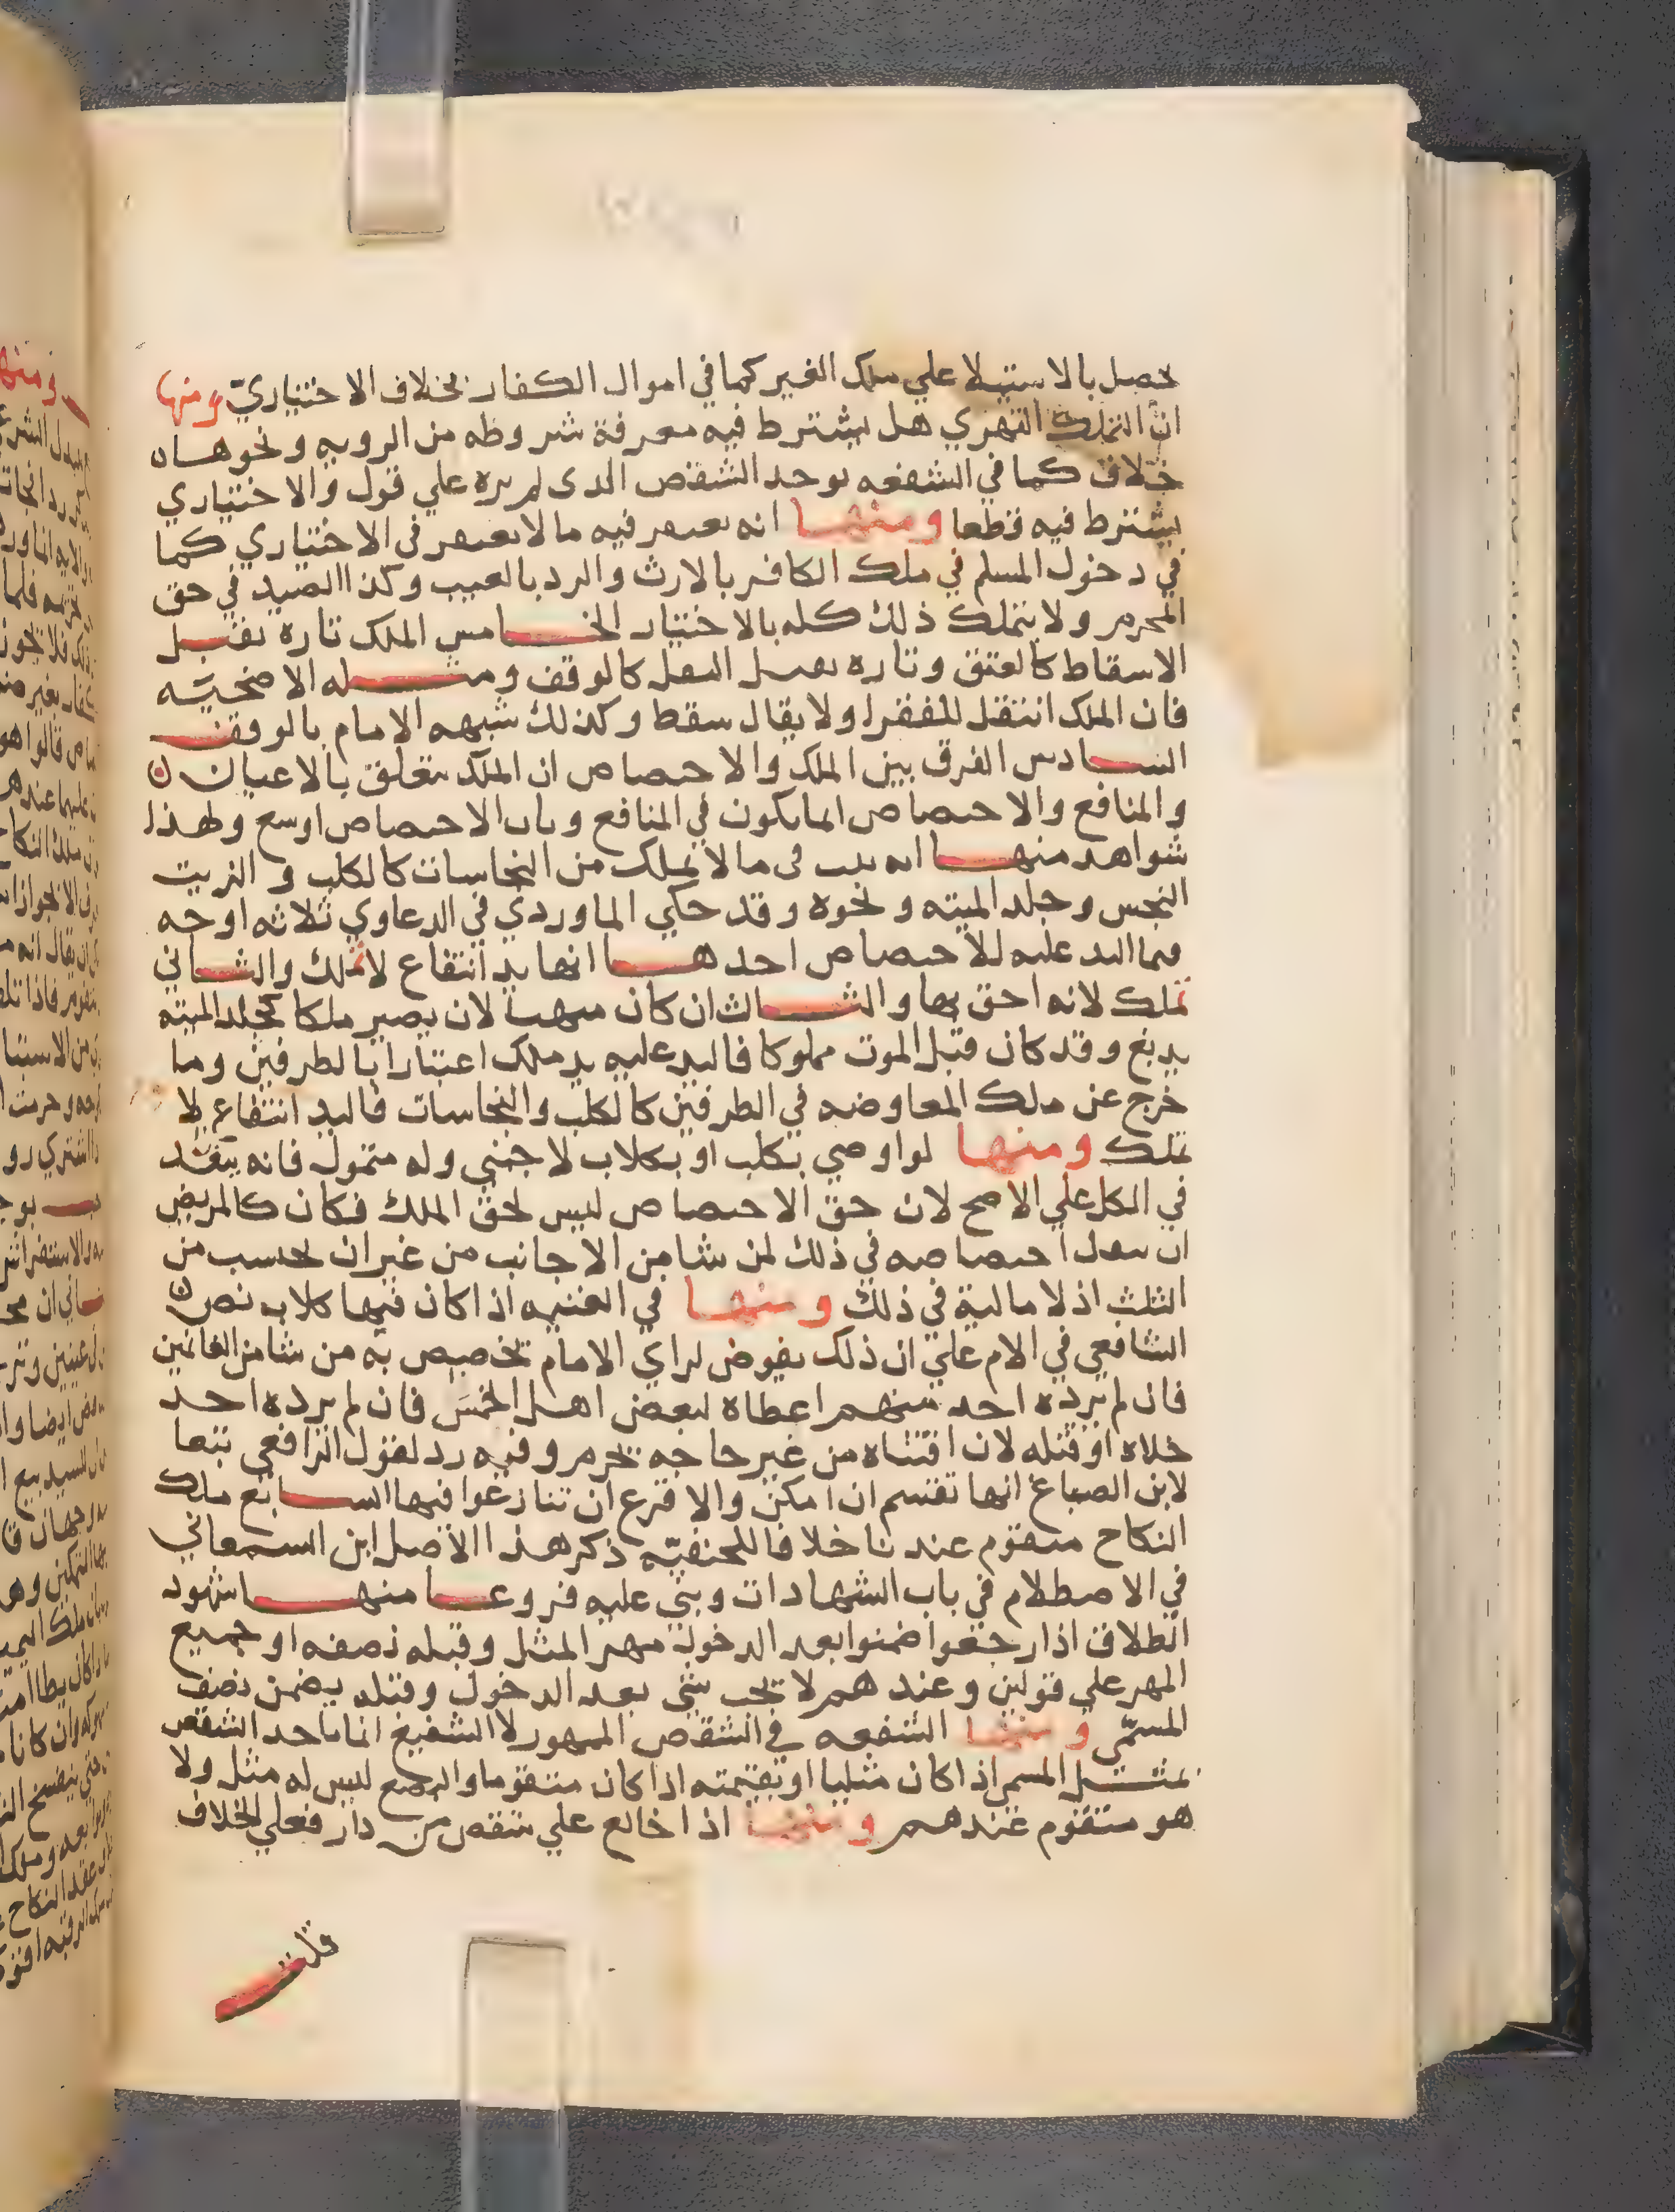 يحصل بالاستيلا علي ملك الغير كما في اموال الكفار بخلاف الاختياريّ ومنها
انّ التملك القهري هل يشترط فيه معرفة شروطه من الرويه ونحوها
خلاف كما في الشفعه يوحد الشقص الذى لم يره علي قول والاختياري
يشترط فيه قطعا ومنها انه يغتفر فيه ما لا يغتفر في الاختياري كما
في دخول المسلم في ملك الكافر بالارث والرد بالعيب وكذا الصيد في حق
المحرم ولا يتملك ذلك كله بالاختيار الخامس الملك تاره يقبل
الاسقاط كالعتق وتاره يقبل النقل كالوقف ومثله الاضحيّه
فان الملك انتقل للفقرا ولا يقال سقط وكذلك شبهه الامام بالوقف
السادس الفرق بين الملك والاختصاص ان الملك يتعلق بالاعيان
والمنافع والاختصاص انما يكون في المنافع وباب الاختصاص اوسع ولهذا
شواهد منها انه يثبت فى ما لا يملك من النجاسات كالكلب والزيت
النجس وجلد الميته ونحوه وقد حكي الماوردي في الدعاوي ثلاثه اوجه
فيما اليد عليه للاختصاص احدها انها يد انتفاع لا تملك والثاني
تملك لانه احق بها والثالث ان كان منها لان يصير ملكا كجلد الميته
يدبغ وقد كان قبل الموت مملوكا فاليد عليه يد ملك اعتبارا بالطرفين وما
خرج عن ملك المعاوضه في الطرفين كالكلب والنجاسات فاليد انتفاع لا
تملك ومنها لو اوصي بكلب او بكلاب لاجنبي وله متمول فانه ينفذ
في الكل علي الاصح لان حق الاختصاص ليس لحق الملك فكان كالمريض
ان ينقل اختصاصه في ذلك لمن شا من الاجانب من غير ان يحسب من
الثلث اذ لا مالية في ذلك ومنها في الغنيمه اذا كان فيها كلاب نص
الشافعي في الام علي ان ذلك يفوض لراي الامام تخصيص به من شا من الغانمين
فان لم يرده احد منهم اعطاه لبعض اهل الخمس فان لم يرده احد
خلاه او قتله لان اقتناه من غير حاجه تحرم وفيه رد لقول الرافعي تبعا
لابن الصباغ انها تقتسم ان امكن والا قرع ان تنازعوا فيها السابع ملك
النكاح متقوم عندنا خلافا للحنفيّه ذكر هذا الاصل ابن السمعاني
في الاصطلام في باب الشهادات وبني عليه فروعا منها شهود
الطلاق اذا رجعوا ضمنوا بعد الدخول مهر المثل وقبله نصفه او جميع
المهر علي قولين وعندهم لا تجب شي بعد الدخول وقبله يضمن نصف
المسمّي ومنها الشفعه في الشقص الممهور لا الشفيع انما ياخد الشقص
بمثل المسمي اذا كان مثليا او بقيمته اذا كان متقوما والبضع ليس له مثل ولا
هو متقوم عندهم ومنها اذا خالع علي شقص من دار فعلي الخلاف
قلت